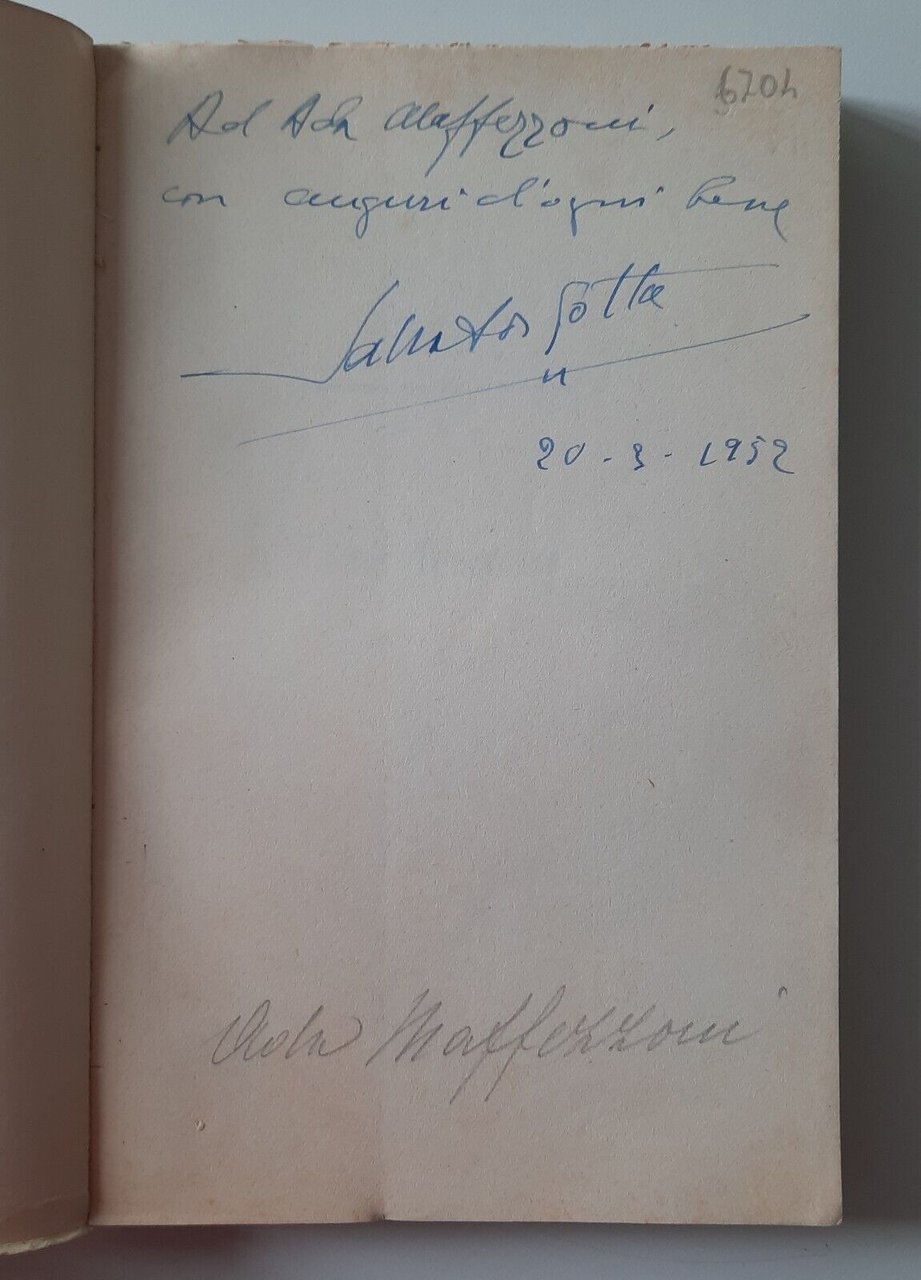 6704
Ad Ada Maffezzoni,
con auguri d'ogni bene
Salvator Gotta
20-3-1952
Ada Maffezzoni